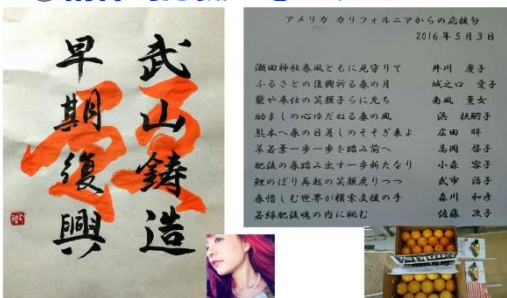 武山鋳造
早期復興
アメリカ カリフォルニアからの応援句
2016年5月3日
瀬田神社春風ともに見守りて 井川 慶子
ふるさとの復興祈る春の月 城之口 愛子
奉仕の笑顔子らに充ち 南風 薫女
励ましの心ゆだねる春の風 浜 扶嗣子
熊本へ春の日差しのそそぎ来よ 広田
草若葉一歩一歩を踏み前へ 高岡 啓子
肥後の春踏み出す一歩新たなり 小森 容子
鯉のぼり再起の笑顔戻りつつ 武市 浩子
春惜しむ世界が積家支援の手 森川 和彦
若緑肥後魂の内に挑む 佐藤 次子